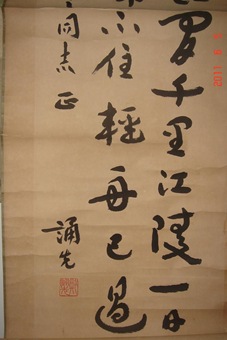 間千里江陵一日
不住輕舟已過
同志正
誦先
2011